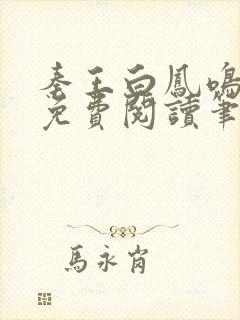 秦王白鳳鳴
免費閱讀筆
馬永肖